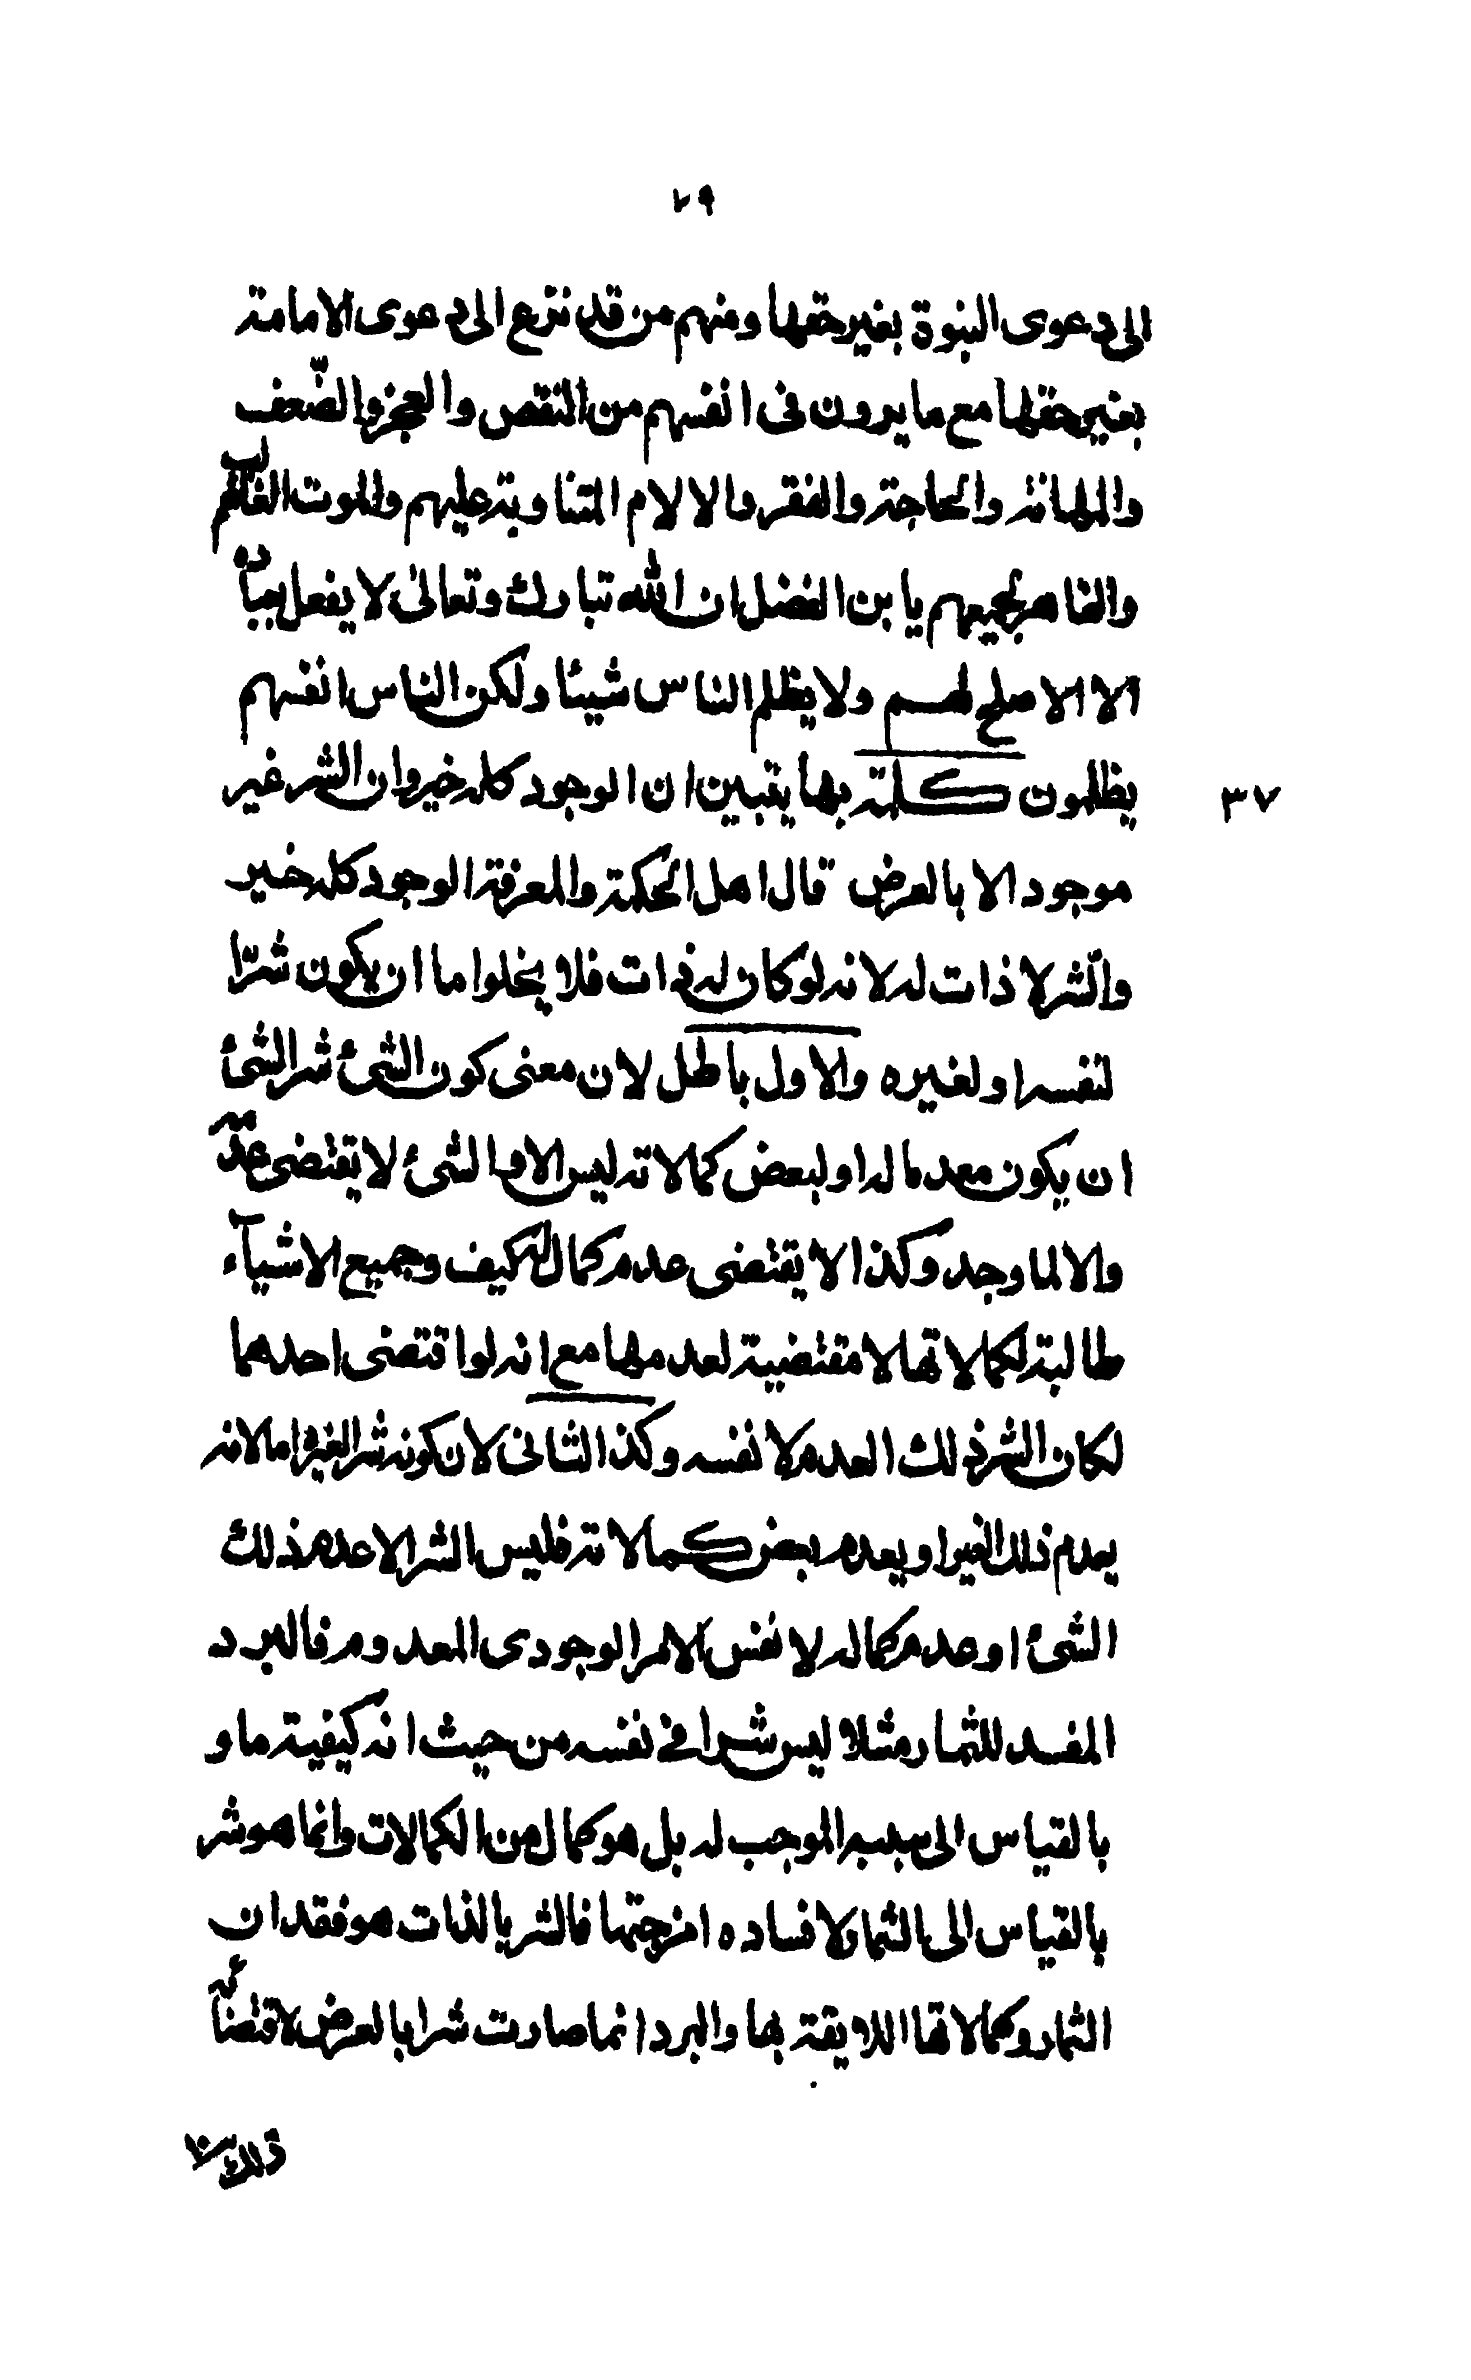 ٧٩
الى دعوى النبوة بغير حقها ومنهم من قد نزع الى دعوى الامامة
بغير حقها مع ما يرون فى انفسهم من النقص والعجز والضّعف
والمهانة والحاجة والفقر والالام المتناوبة عليهم والموت الغالب
والقاهر لجميعهم يا بن الفضل ان الله تبارك وتعالى لا يفعل بعباده
الا الاصلح لهم ولا يظلم الناس شيئا ولكن الناس انفسهم
يظلمون كلمة بها يتبين ان الوجود كله خير وان الشر غير
٣٧
موجود الا بالعرض قال اهل الحكمة والمعرفة الوجود كله خير
والشر لا ذات له لانه لو كان له ذات فلا يخلوا ما ان يكون شرّا
لنفسه او لغيره والاول باطل لان معنى كون الشئ شر الشئ
ان يكون معدما له او لبعض كمالاته ليس الا والشئ لا يقتضى عدمه
والا لما وجد وكذا لا يقتضى عدم كماله كيف وجميع الاشيآء
طالبة لكمالاتها لا مقتضية لعدمها مع انه لو اقتضى احدهما
لكان الشر ذلك العدم لا نفسه وكذا الثانى لان كونه شر الغيره اما لانه
يعدم ذلك الغير او يعدم بعض كمالاته فليس الشر الا عدم ذلك
الشئ او عدم كماله لا نفس الامر الوجودى المعدوم فالبرد
المفسد للثمار مثلا ليس شرا فى نفسه من حيث انه كيفية ما و
بالقياس الى سببه الموجب له بل هو كمال من الكمالات وانما هو شر
بالقياس الى الثمار لافساده امزجتها فالشر بالذات هو فقدان
الثمار وكمالاتها اللايقة بها والبرد انما صارت شرا بالعرض لاقتضائه